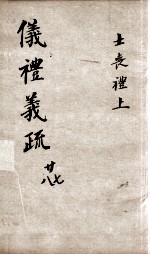 士喪禮上
儀禮義疏
廿七
八